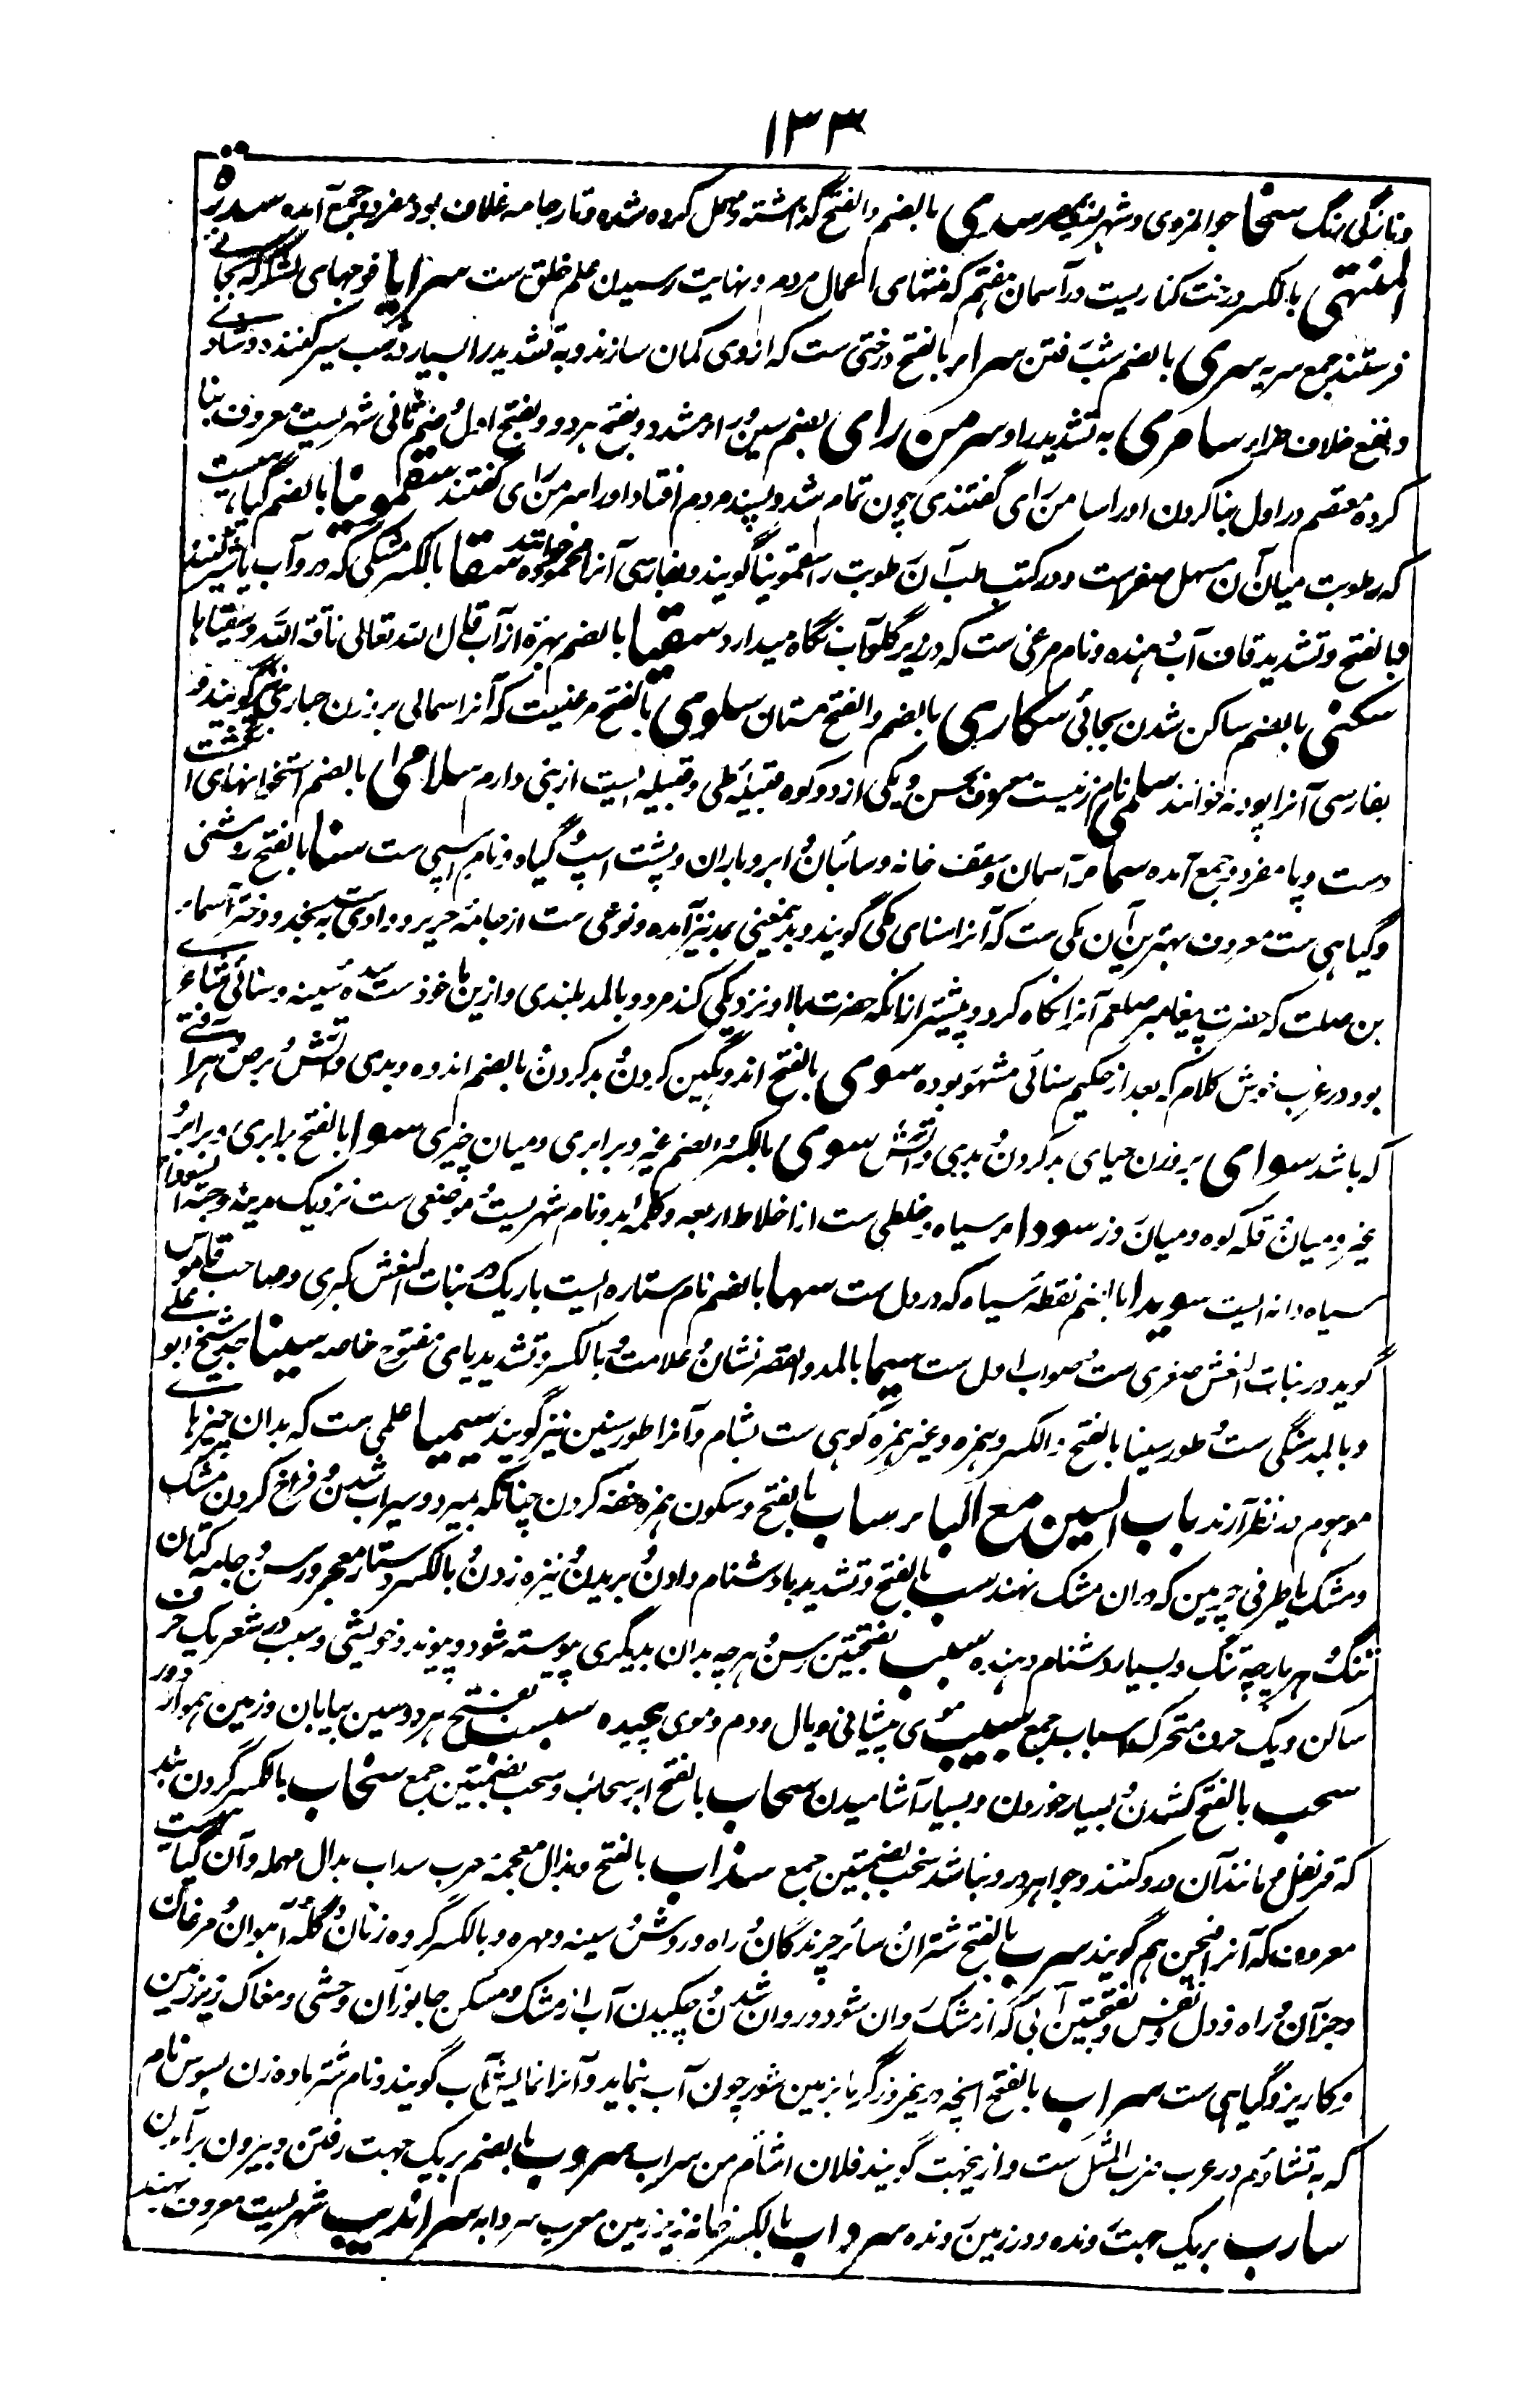 ۱۳۳
وتازگی رنگ سخا جوانمردی وشهریست بمصر سدی بالضم والفتح گذاشته ومهمل کرده شده وتار جامه غلاف بود مفرد وجمع آمده سدرة
المنتهی بالکسر درخت کناریست در آسمان هفتم که منتهای اعمال مردم ونهایت رسیدن علم خلق ست سرایا فوجهای لشکر که بجائے
فرستند جمع سریه سری بالضم بشب رفتن سراء بالفتح درختی ست که ازوی کمان سازند وبه تشدید را بسیار در شب سیر کننده وشادی
ونفع خلاف ضراء سامری به تشدید را وسرمن رای بضم سین وراء مشدد وبفتح هر دو وبفتح اول وضم ثانی شهریست معروف بنا
کرده معتصم در اول بنا کردن اورا سامن رای گفتندی چون تمام شد وپسند مردم افتاد اورا سرمن رای گفتند سقمونیا بالضم گیاهیست
که رطوبت میان آن مسهل صفراست ودر کتب طب آن رطوبت را سقمونیا گویند وبفارسی آنرا محموده خوانند سقا بالکسر مشکی که درو آب یا شیر کنند
وبالفتح وتشدید قاف آب دهنده ونام مرغی ست که در زیر گلو آب نگاه میدارد سقیا بالضم بهره از آب قال الله تعالی ناقة الله وسقیاها
سکنی بالضم ساکن شدن بجائی سکاری بالضم والفتح مستان سلوی بالفتح مرغیست که آنرا سمانی بر وزن حباری هم گویند و
بفارسی آنرا پودنه خوانند سلمی نام زنیست معروف بحسن ویکی از دو کوه قبیله طی وقبیله ایست از بنی دارم سلامی بالضم استخوانهای انگشت
دست وپا مفرد وجمع آمده سماء آسمان وسقف خانه وسائبان وابر وباران وپشت اسپ وگیاه ونام اسپی ست سنا بالفتح روشنی
وگیاهی ست معروف بهترین آن مکی ست که آنرا سنای مکی گویند وبدینمعنی بمد نیز آمده ونوعی ست از جامه حریر ووادی ست به نجد ودختر اسماء
بن صلت که حضرت پیغامبر صلعم آنرا نکاح کرد وپیشتر ازانکه حضرت با او نزدیکی کند مرد وبالمد بلندی وازین ماخوذ ست
بود در عرب خوش کلام که بعد از حکیم سنائی مشهور بوده سوی بالفتح اندوهگین کردن وبد کردن وبالضم اندوه وبدی وآتش وبرص وهر آفتے
که باشد سوای بر وزن حیای بد کردن وبدی وآتش سوی بالکسر والضم غیر وبرابری ومیان چیزی سوا بالفتح برابری وبرابر و
غیر ومیان وقله کوه ومیان روز سوداء سیاه وخلطی ست از اخلاط اربعه وکلمه بد ونام شهریست وموضعی ست نزدیک مدینه وحبة السودا
سیاه دانه ایست سویدا بالضم نقطه سیاه که در دل ست سها بالضم نام ستاره ایست باریک در بنات النعش کبری وصاحب قاموس
گوید در بنات النعش صغری ست وصواب اول ست سیما بالمد والقصر نشان وعلامت وبالکسر وتشدید یای مفتوح خاصه سینا جد شیخ ابو علے
وبالمد سنگی ست وطور سینا بالفتح والکسر وهمزه وغیر همزه کوهی ست بشام وآنرا طور سنین نیز گویند سیمیا علمی ست که بدان چیزهاے
موهوم در نظر آرند باب السین مع الباء ساب بالفتح وسکون همزه خفه کردن چنانکه بمیرد وسیراب شدن وفراخ کردن مشک
ومشک یا ظرفی چرمین که دران مشک نهند سب بالفتح وتشدید با دشنام دادن وبریدن ونیزه زدن وبالکسر دستار ومعجر ورسن وجامه کتان
تنک وهر پارچه تنک وبسیار دشنام دهنده سبب بفتحتین رسن وهرچه بدان بدیگری پیوسته شود وپیوند وخویشی وسبب در شعر یک حرف
ساکن ویک حرف متحرک اسباب جمع سبیب موی پیشانی ویال ودم وموی پیچیده سبسب بفتح هر دو سین بیابان وزمین هموار دور
سحب بالفتح کشیدن وبسیار خوردن وبسیار آشامیدن سحاب بالفتح ابر سحائب وسحب بضمتین جمع سخاب بالکسر گردن بند
که قرنفل ومانند آن درو کنند وجواهر درو نباشد سخب بضمتین جمع سذاب بالفتح وبذال معجمه معرب سداب بدال مهمله وآن گیاهیست
معروف که آنرا فیجن هم گویند سرب بالفتح شتران وسائر چرندگان وراه وروش وسینه ومهره وبالکسر گروه زنان وگله آهوان ومرغان
وجز آن وراه ودل ونفس وبفتحتین آبی که از مشک روان شود وروان شدن وچکیدن آب از مشک ومسکن جانوران وحشی ومغاک زیر زمین
وکاریز وگیاهی ست سراب بالفتح آنچه در نیمروز گرما بزمین شور چون آب بنماید وآنرا نمایش آب گویند ونام شتر ماده زن بسوس نام
که به تشاؤم در عرب ضرب المثل ست وازینجهت گویند فلان اشأم من سراب سروب بالضم بریک جهت رفتن وبیرون برآمدن
سارب بریک جهت رونده ودر زمین رونده سرداب بالکسر خانه زیر زمین معرب سردابه سراندیب شهریست معروف بهند